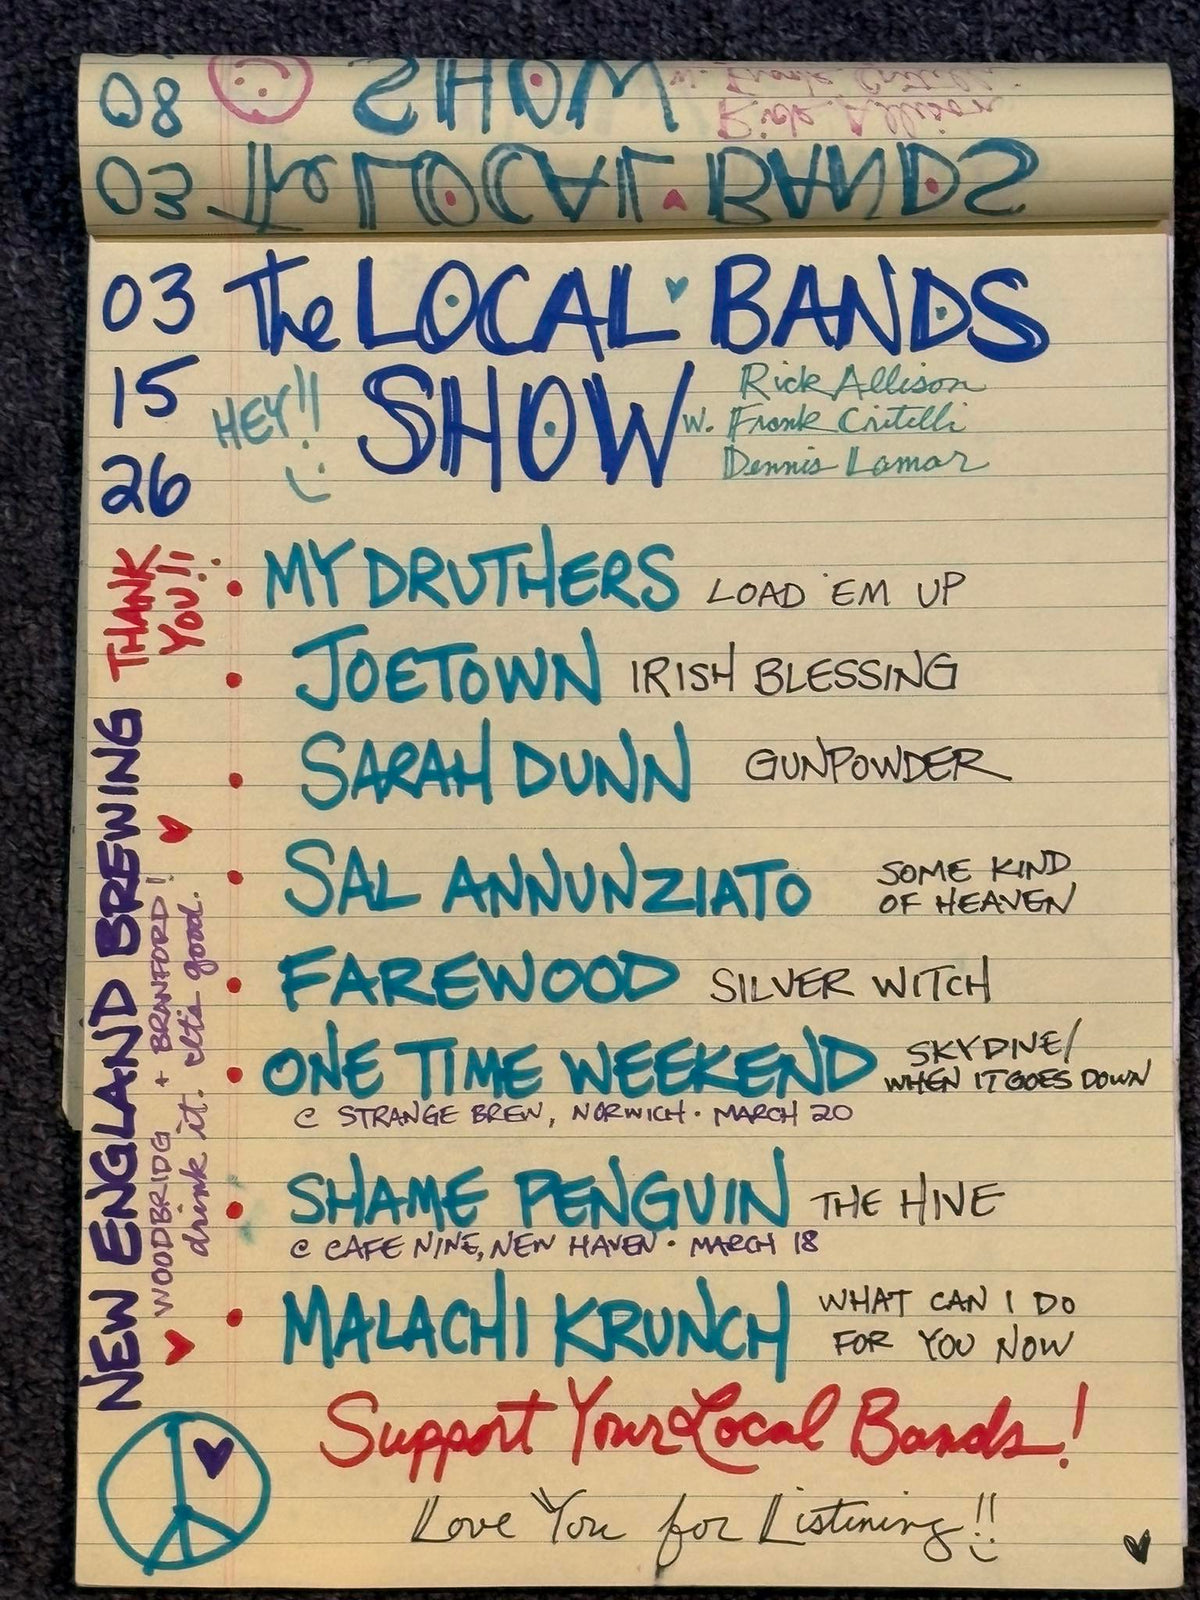 08 SHOW w. Frank Critelli
Rick Allison
03 The LOCAL BANDS
03 The LOCAL BANDS
15 HEY!! SHOW Rick Allison
w. Frank Critelli
26 Dennis Lamar
THANK YOU!!
• MY DRUTHERS LOAD 'EM UP
• JOETOWN IRISH BLESSING
• SARAH DUNN GUNPOWDER
• SAL ANNUNZIATO SOME KIND
OF HEAVEN
• FAREWOOD SILVER WITCH
• ONE TIME WEEKEND SKYDIVE/
WHEN IT GOES DOWN
@ STRANGE BREW, NORWICH • MARCH 20
• SHAME PENGUIN THE HIVE
@ CAFE NINE, NEW HAVEN • MARCH 18
• MALACHI KRUNCH WHAT CAN I DO
FOR YOU NOW
NEW ENGLAND BREWING
WOODBRIDG + BRANFORD!
drink it. it's good.
Support Your Local Bands!
Love You for Listening!!